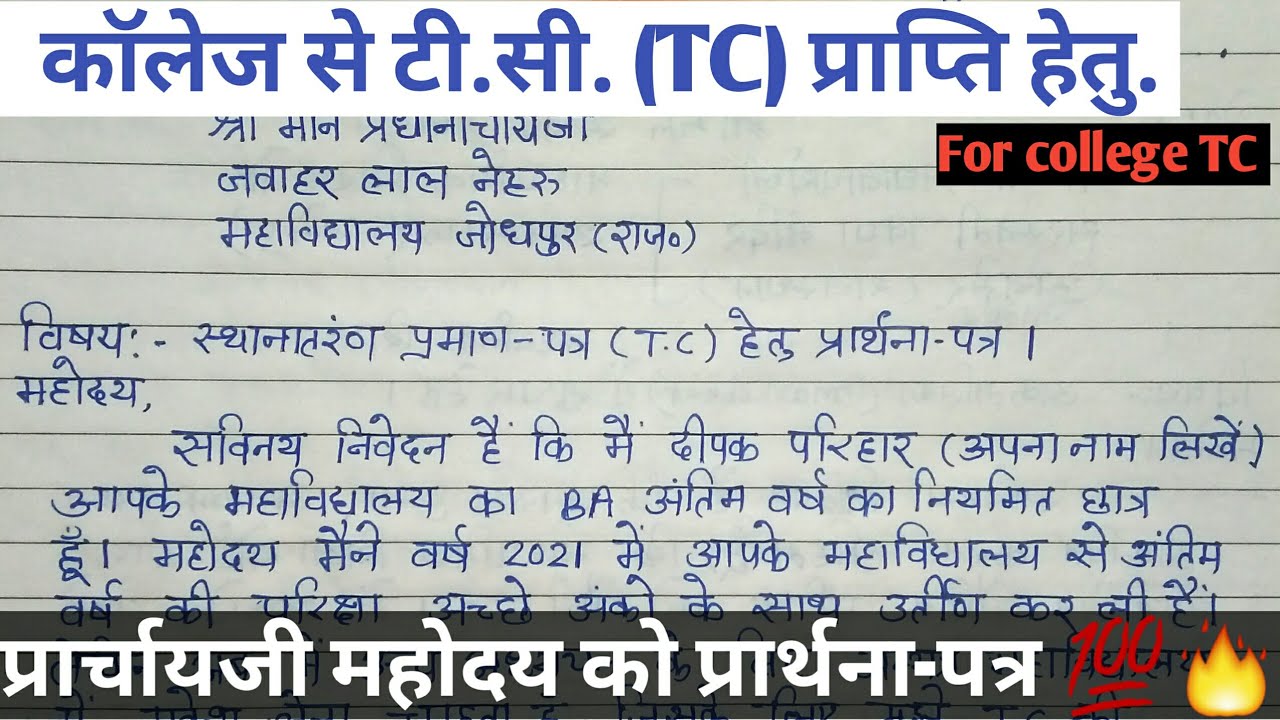 कॉलेज से टी.सी. (TC) प्राप्ति हेतु.
For college TC
श्री मान प्रधानाचार्यजी
जवाहर लाल नेहरु
महाविद्यालय जोधपुर (राज०)
विषय:- स्थानातरंण प्रमाण-पत्र (T.C) हेतु प्रार्थना-पत्र ।
महोदय,
सविनय निवेदन हैं कि मैं दीपक परिहार (अपना नाम लिखें)
आपके महाविद्यालय का BA अंतिम वर्ष का नियमित छात्र
हूँ। महोदय मैने वर्ष 2021 में आपके महाविद्यालय से अंतिम
वर्ष की परिक्षा अच्छे अंको के साथ उर्तीण कर ली हैं।
प्रार्चायजी महोदय को प्रार्थना-पत्र 💯🔥